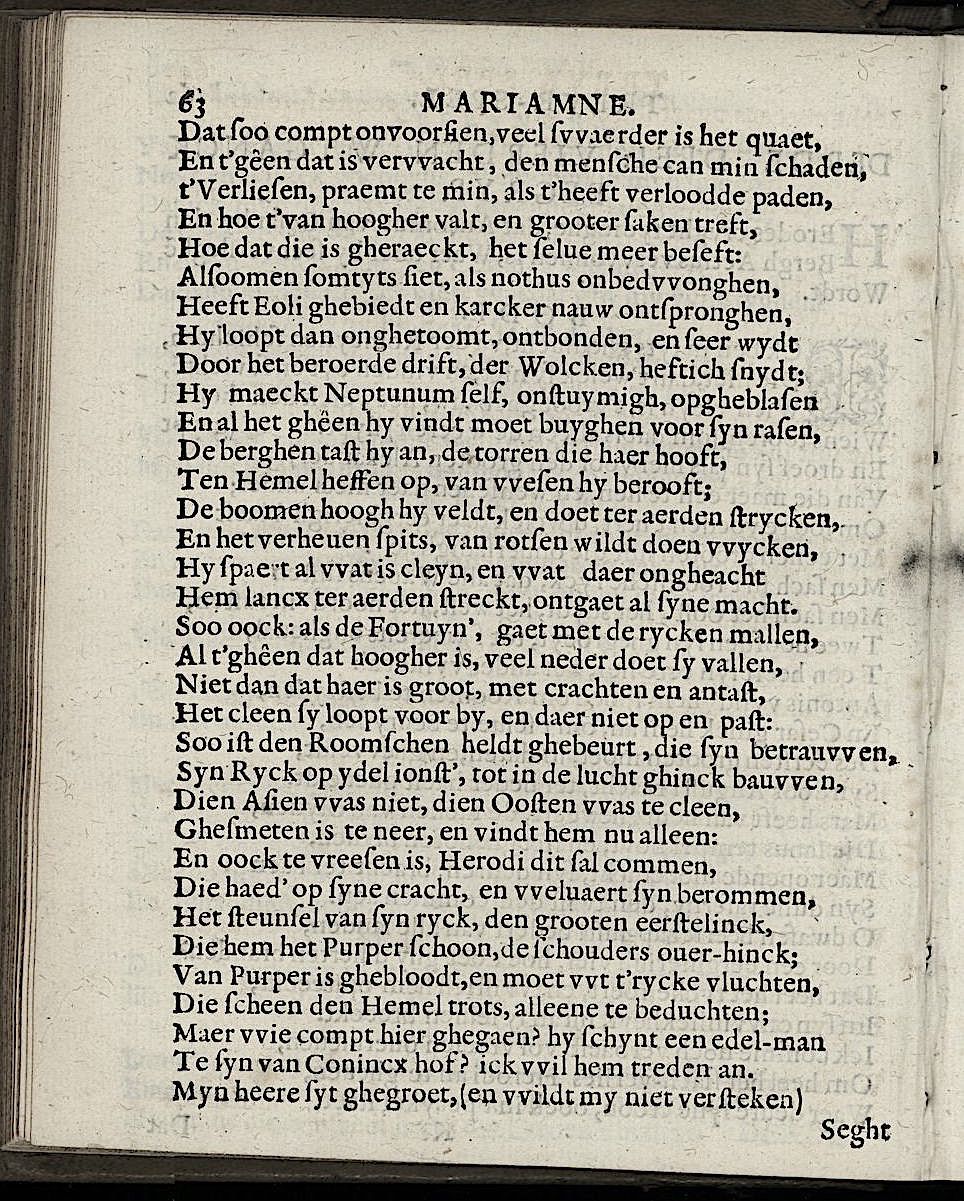 63 MARIAMNE.
Dat ſoo compt onvoorſien, veel ſvvaerder is het quaet,
En t'gêen dat is vervvacht, den menſche can min ſchaden,
t'Verlieſen, praemt te min, als t'heeft verloodde paden,
En hoe t'van hoogher valt, en grooter ſaken treft,
Hoe dat die is gheraeckt, het ſelue meer beſeft:
Alſoomen ſomtyts ſiet, als nothus onbedvvonghen,
Heeft Eoli ghebiedt en karcker nauw ontſpronghen,
Hy loopt dan onghetoomt, ontbonden, en ſeer wydt
Door het beroerde drift, der Wolcken, heftich ſnydt;
Hy maeckt Neptunum ſelf, onſtuymigh, opgheblaſen
En al het ghêen hy vindt moet buyghen voor ſyn raſen,
De berghen taſt hy an, de torren die haer hooft,
Ten Hemel heffen op, van vveſen hy berooft;
De boomen hoogh hy veldt, en doet ter aerden ſtrycken,
En het verheuen ſpits, van rotſen wildt doen vvycken,
Hy ſpaert al vvat is cleyn, en vvat daer ongheacht
Hem lancx ter aerden ſtreckt, ontgaet al ſyne macht.
Soo oock: als de Fortuyn', gaet met de rycken mallen,
Al t'ghêen dat hoogher is, veel neder doet ſy vallen,
Niet dan dat haer is groot, met crachten en antaſt,
Het cleen ſy loopt voor by, en daer niet op en paſt:
Soo iſt den Roomſchen heldt ghebeurt, die ſyn betrauvven,
Syn Ryck op ydel ionſt', tot in de lucht ghinck bauvven,
Dien Aſien vvas niet, dien Ooſten vvas te cleen,
Gheſmeten is te neer, en vindt hem nu alleen:
En oock te vreeſen is, Herodi dit ſal commen,
Die haed' op ſyne cracht, en vveluaert ſyn berommen,
Het ſteunſel van ſyn ryck, den grooten eerſtelinck,
Die hem het Purper ſchoon, de ſchouders ouer-hinck;
Van Purper is ghebloodt, en moet vvt t'rycke vluchten,
Die ſcheen den Hemel trots, alleene te beduchten;
Maer vvie compt hier ghegaen? hy ſchynt een edel-man
Te ſyn van Conincx hof? ick vvil hem treden an.
Myn heere ſyt ghegroet, (en vvildt my niet verſteken)
Seght